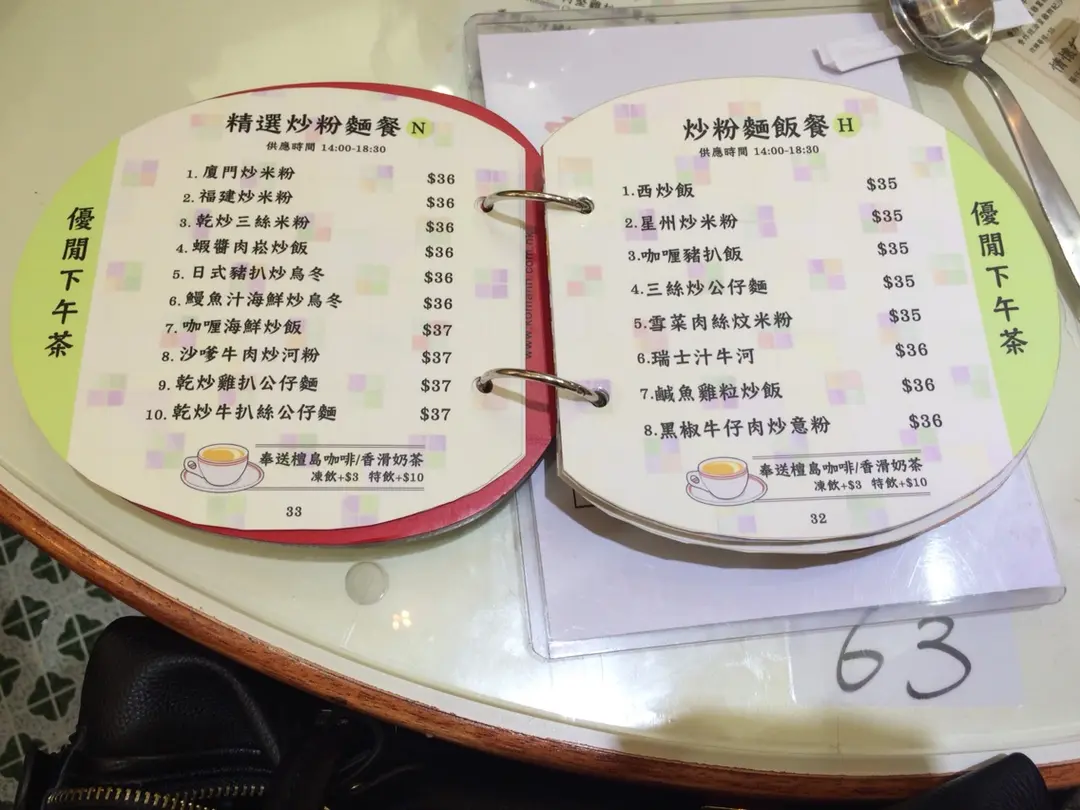 優閒下午茶
精選炒粉麵餐 N
供應時間 14:00-18:30
1. 廈門炒米粉 $36
2. 福建炒米粉 $36
3. 乾炒三絲米粉 $36
4. 蝦醬肉崧炒飯 $36
5. 日式豬扒炒烏冬 $36
6. 鰻魚汁海鮮炒烏冬 $36
7. 咖喱海鮮炒飯 $37
8. 沙嗲牛肉炒河粉 $37
9. 乾炒雞扒公仔麵 $37
10. 乾炒牛扒絲公仔麵 $37
奉送檀島咖啡/香滑奶茶
凍飲+$3 特飲+$10
33
炒粉麵飯餐 H
供應時間 14:00-18:30
1.西炒飯 $35
2.星州炒米粉 $35
3.咖喱豬扒飯 $35
4.三絲炒公仔麵 $35
5.雪菜肉絲炆米粉 $35
6.瑞士汁牛河 $36
7.鹹魚雞粒炒飯 $36
8.黑椒牛仔肉炒意粉 $36
奉送檀島咖啡/香滑奶茶
凍飲+$3 特飲+$10
32
優閒下午茶
63